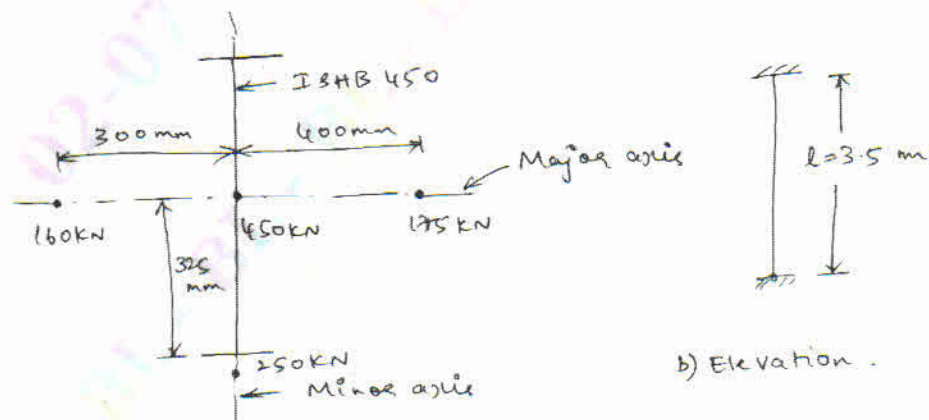 ISHB 450
300mm
400mm
Major axis
l=3.5 m
160KN
450KN
175 KN
325
mm
250KN
Minor axis
b) Elevation.